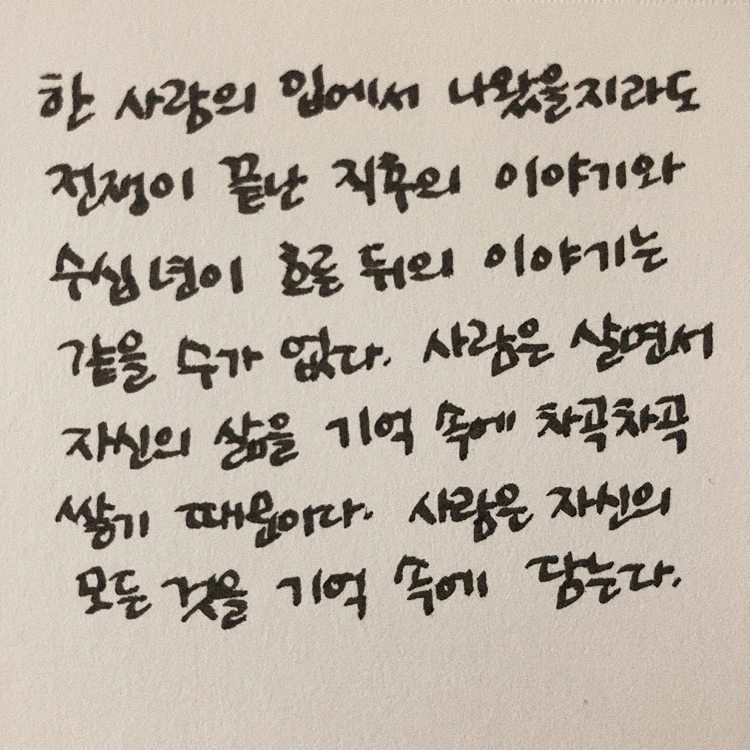 한 사람의 입에서 나왔을지라도
전쟁이 끝난 직후의 이야기와
수십년이 흐른 뒤의 이야기는
같을 수가 없다. 사람은 살면서
자신의 삶을 기억 속에 차곡차곡
쌓기 때문이다. 사람은 자신의
모든 것을 기억 속에 담는다.